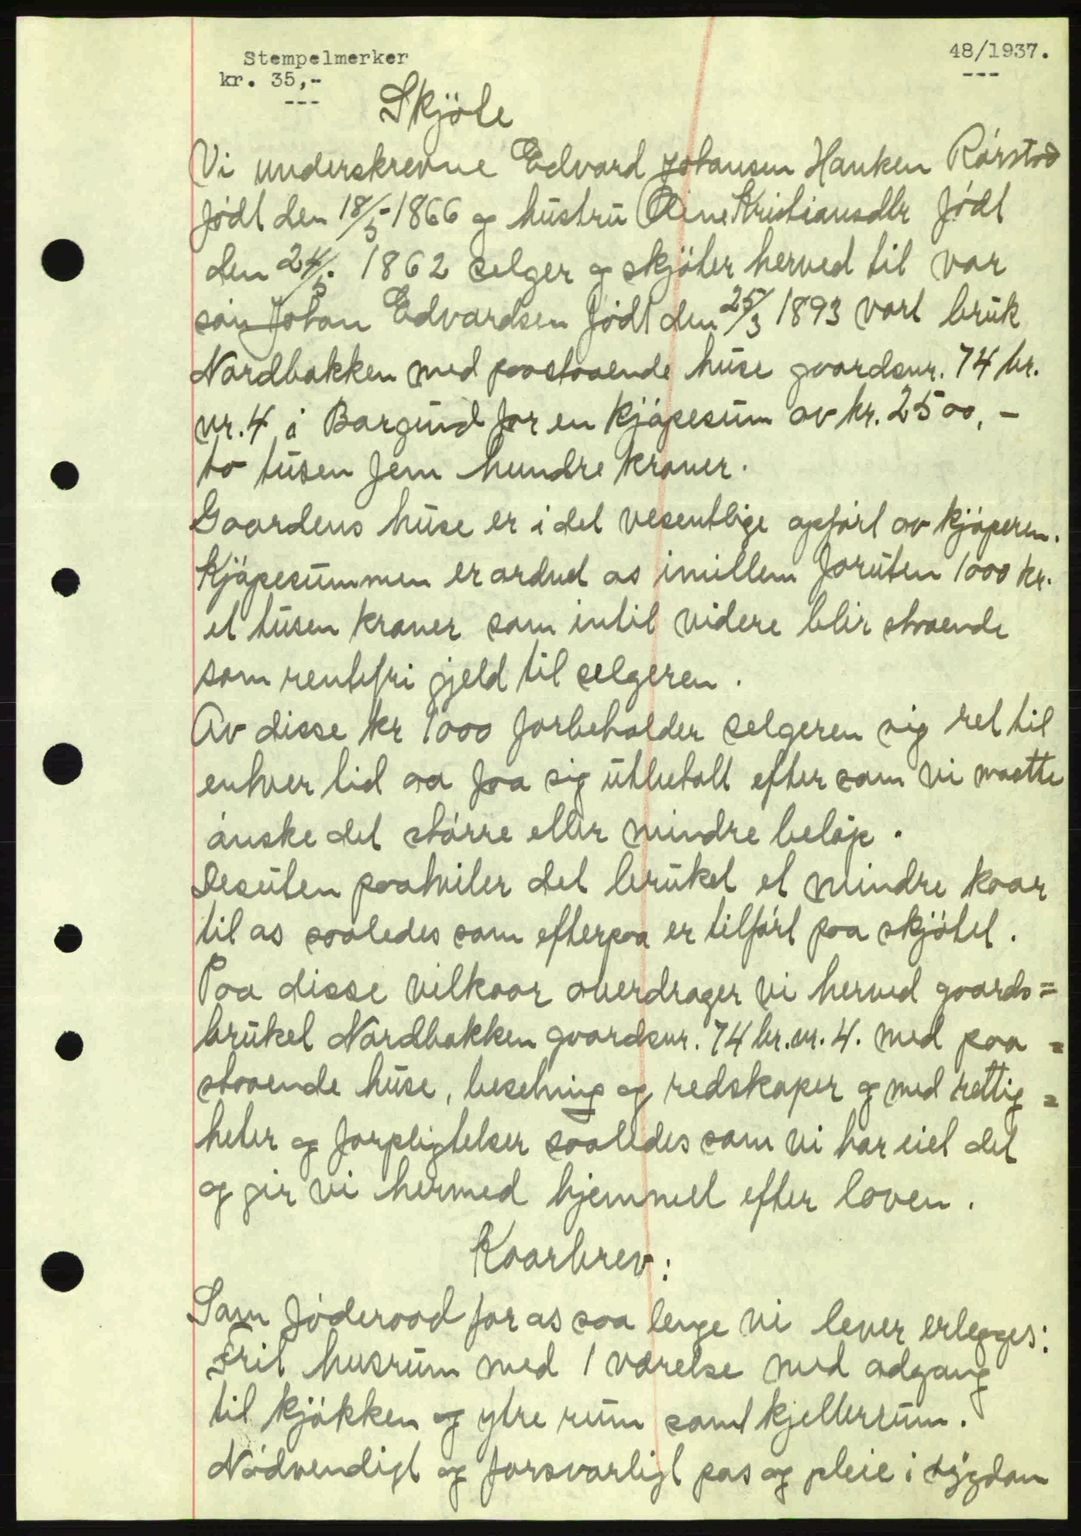 Stempelmerker
kr. 35,-
---
48/1937.
---
Skjöte
Vi underskrevne Edvard Johansen Hanken Rørstad
født den 18/5-1866 og hustru Oline Kristiansdtr født
den 24/5 1862 selger og skjöter herved til vor
søn Johan Edvardsen født den 25/3 1893 vort bruk
Nordbakken med paastaaende huse gaardsnr. 74 br.
nr. 4 i Borgund for en kjøpesum av kr. 2500,-
to tusen fem hundre kroner.
Gaardens huse er i det vesentlige opført av kjøperen.
Kjøpesummen er ordnet os imillem foruten 1000 kr.
et tusen kroner som intil videre blir staaende
som rentefri gjeld til selgeren.
Av disse kr 1000 forbeholder selgeren sig ret til
enhver tid aa faa sig utbetalt efter som vi maatte
ønske det større eller mindre beløp.
Desuten paahviler det bruket et mindre kaar
til os saaledes som efterpaa er tilført paa skjötet.
Paa disse vilkaar overdrager vi herved gaards=
bruket Nordbakken gaardsnr. 74 br.nr. 4. med paa=
staaende huse, besetning og redskaper og med rettig=
heter og forpligtelser saaledes som vi har eiet det
og gir vi hermed hjemmel efter loven.
Kaarbrev:
Som føderaad for os saa lenge vi lever erlegges:
Frit husrum med 1 værelse med adgang
til kjøkken og ytre rum samt kjellerrum.
Nødvendigt og forsvarligt pas og pleie i sygdom